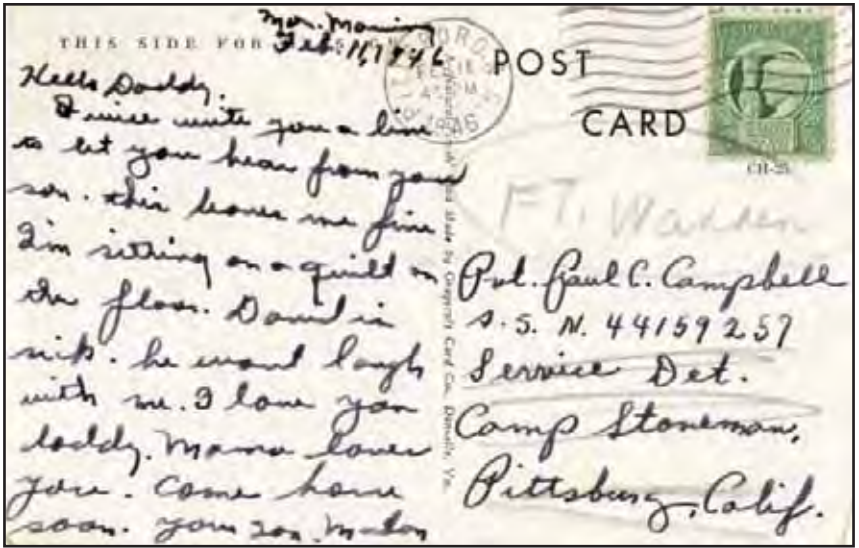 Mon. Morning
Feb. 11, 1946
THIS SIDE FOR
POST
CARD
1946
CH-25
Hello Daddy.
I will write you a line
to let you hear from your
son. this leaves me fine
I'm sitting on a quild on
the floor. David is
sick. he wond laugh
with me. I love you
daddy. Mama loves
you. Come home
soon. your son,
Made by Graycraft Card Co., Danville, Va.
FT.
Pvt. Paul C. Campbell
A. S. N. 44159257
Service Det.
Camp Stoneman,
Pittsburg, Calif.